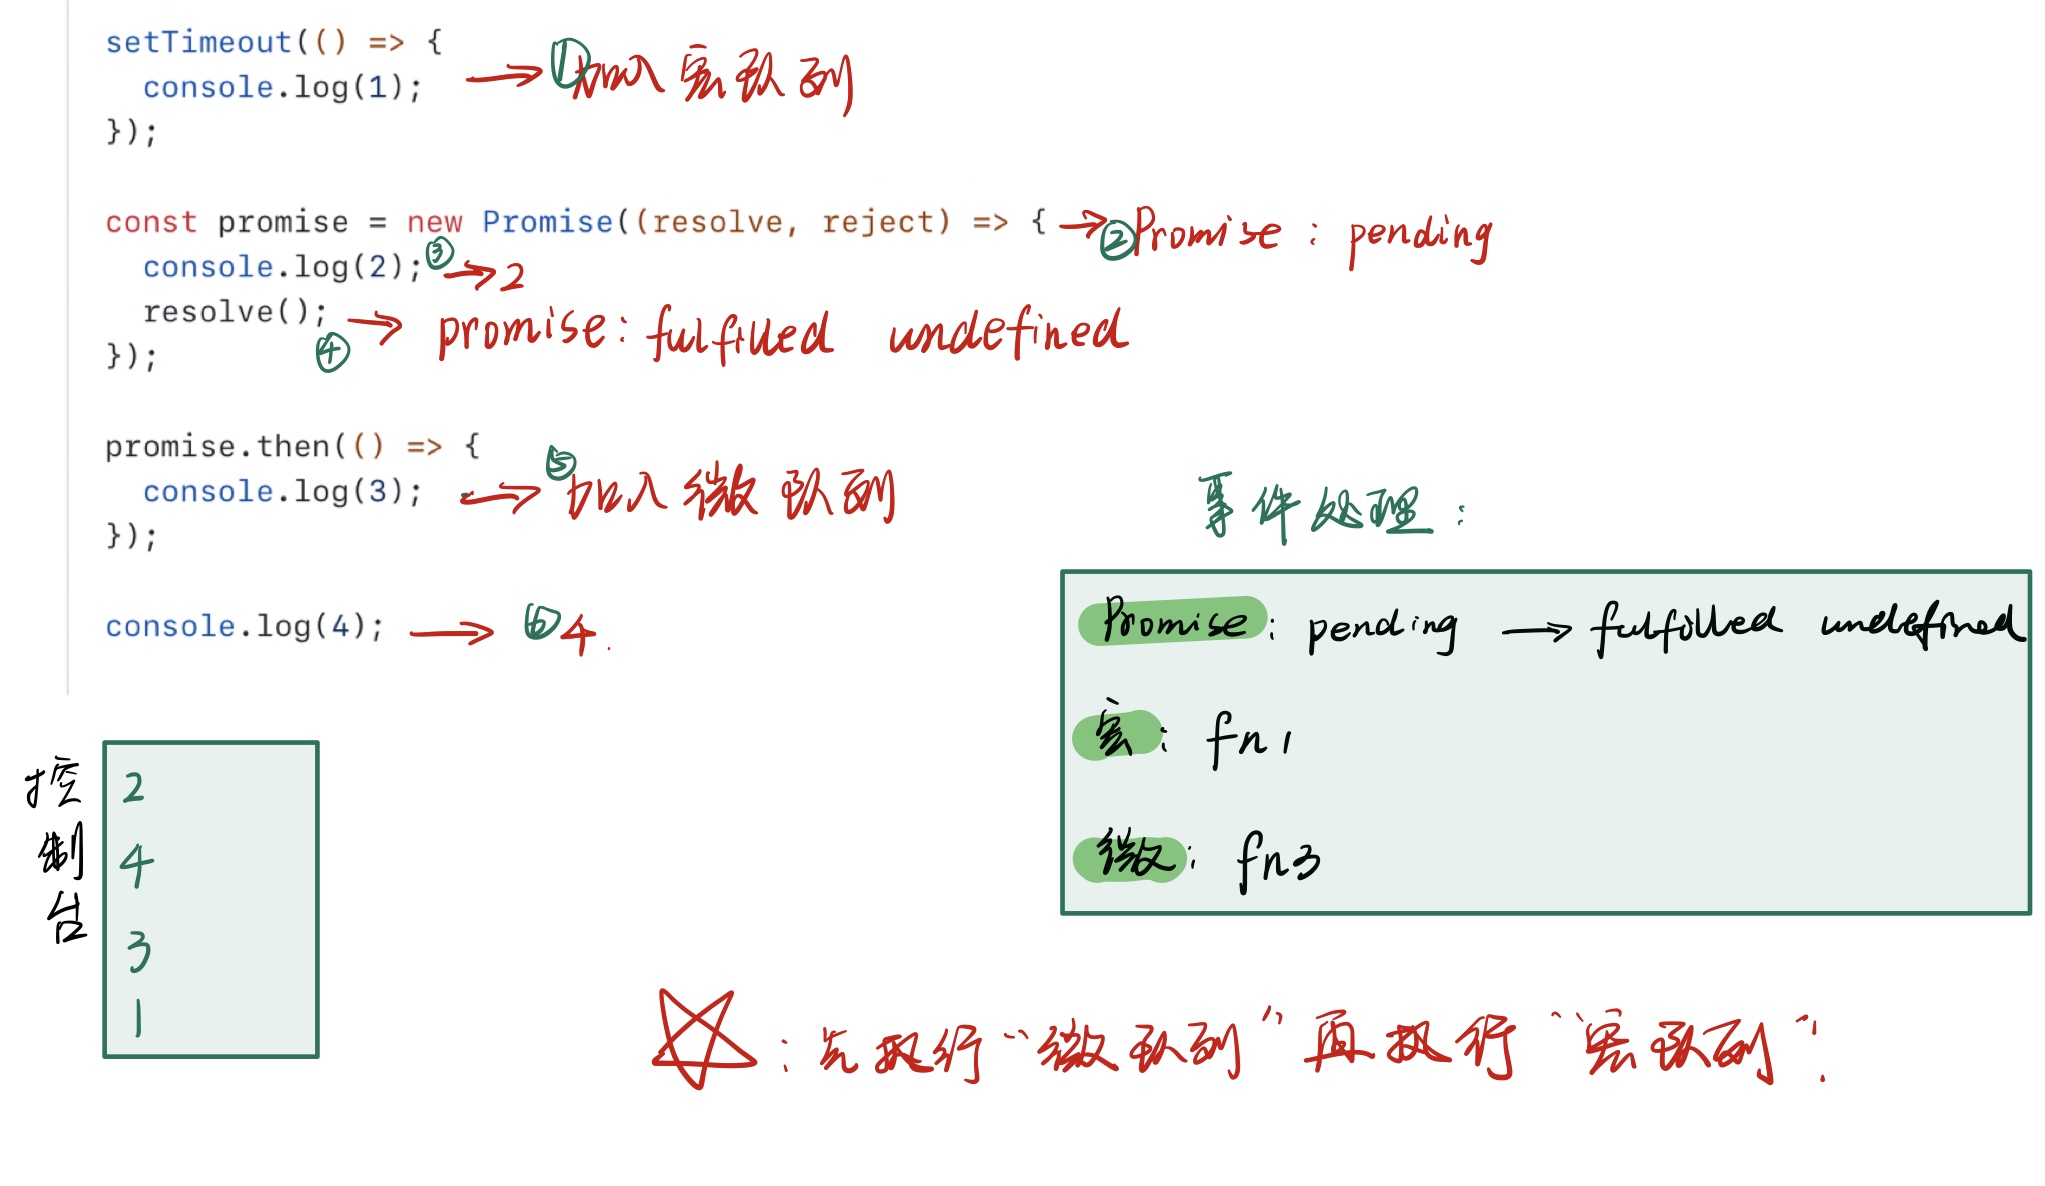 setTimeout(() => {
console.log(1); → ①加入宏队列
});
const promise = new Promise((resolve, reject) => { → ②Promise : pending
console.log(2); ③ → 2
resolve(); ④ → promise: fulfilled undefined
});
promise.then(() => {
console.log(3); → ⑤加入微队列
});
console.log(4); → ⑥4.
事件处理:
Promise: pending → fulfilled undefined
宏: fn1
微: fn3
控制台
2
4
3
1
☆:先执行“微队列”再执行“宏队列”!